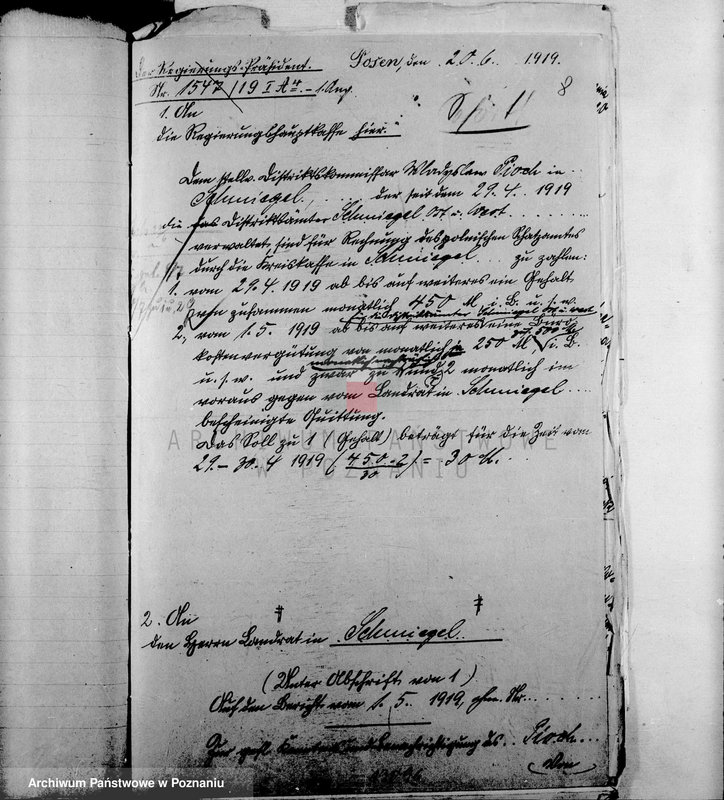 Der Regierungs-Präsident. Posen, den 20.6. 1919.
Nr. 1547/19 I A - 1. Ang. 8
1. An
die Regierungshauptkasse hier.
Dem stellv. Distriktskommissar Wladyslaw Pioch in
Schmiegel, ... der seit dem 29.4. 1919
die Distriktsämter Schmiegel Ost u. West
verwaltet, sind für Rechnung des polnischen Schatzamtes
durch die Kreiskasse in Schmiegel ... zu zahlen:
1. vom 29.4.1919 ab bis auf weiteres ein Gehalt
von zusammen monatlich 450 M i. B. u. s. w.
2. vom 1.5. 1919 ab bis auf weiteres eine Büro
kostenvergütung von monatlich 250 M i. B.
u. s. w. und zwar zu 1 und 2 monatlich im
voraus gegen vom Landrat in Schmiegel
bescheinigte Quittung.
Das Soll zu 1 (Gehalt) beträgt für die Zeit vom
29.-30.4 1919 (450·2/30) = 30 M.
ARCHIWUM PAŃSTWOWE
W POZNANIU
2. An
den Herrn Landrat in Schmiegel
(Unter Abschrift von 1)
Auf den Bericht vom 1.5. 1919, Nr.
Zur gefl. Kenntnis und Benachrichtigung des Pioch
Archiwum Państwowe w Poznaniu